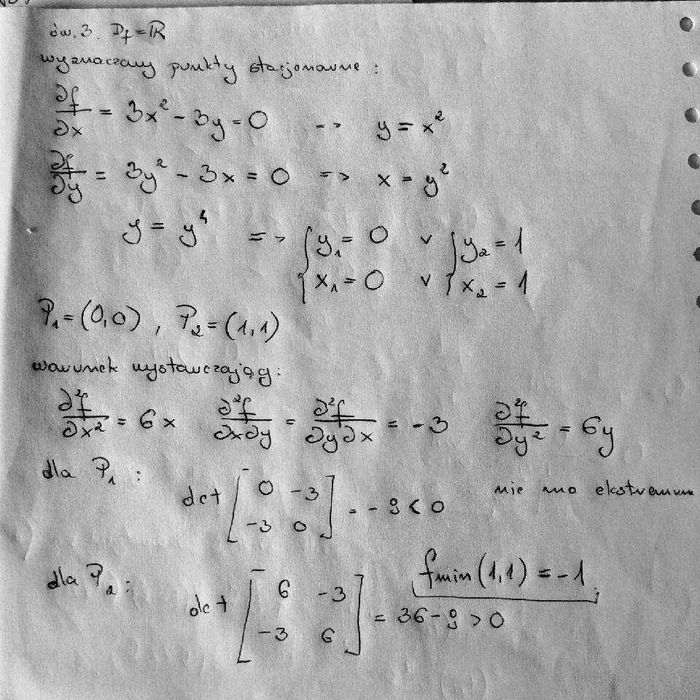 ćw. 3. Df = R
wyznaczamy punkty stacjonarne :
∂f/∂x = 3x² - 3y = 0 => y = x²
∂f/∂y = 3y² - 3x = 0 => x = y²
y = y⁴ => { y₁ = 0 ∨ { y₂ = 1
{ x₁ = 0 ∨ { x₂ = 1
P₁ = (0,0) , P₂ = (1,1)
warunek wystarczający:
∂²f/∂x² = 6x ∂²f/∂x∂y = ∂²f/∂y∂x = -3 ∂²f/∂y² = 6y
dla P₁ : det [ 0 -3 ; -3 0 ] = -9 < 0 nie ma ekstremum
dla P₂ : det [ 6 -3 ; -3 6 ] = 36 - 9 > 0 fmin (1,1) = -1